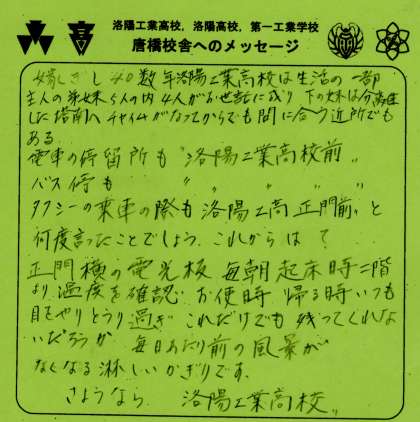 洛陽工業高校，洛陽高校，第一工業学校
唐橋校舎へのメッセージ
嫁しぎし40数年洛陽工業高校は生活の一部
主人の弟妹5人の内4人がお世話に成り 下の妹は分離
した塔南へ チャイムがなってからでも間に合う近所でも
ある
電車の停留所も〝洛陽工業高校前〟
バス停も 〃 〃 〃 〃
タクシーの乗車の際も洛陽工高 正門前〟と
何度言ったことでしょう これからは？
正門横の電光板 毎朝起床時二階
より温度を確認 お使時 帰る時いつも
目をやりとうり過ぎ これだけでも残ってくれな
いだろうか 毎日あたり前の風景が
なくなる淋しいかぎりです、
さようなら 洛陽工業高校〟